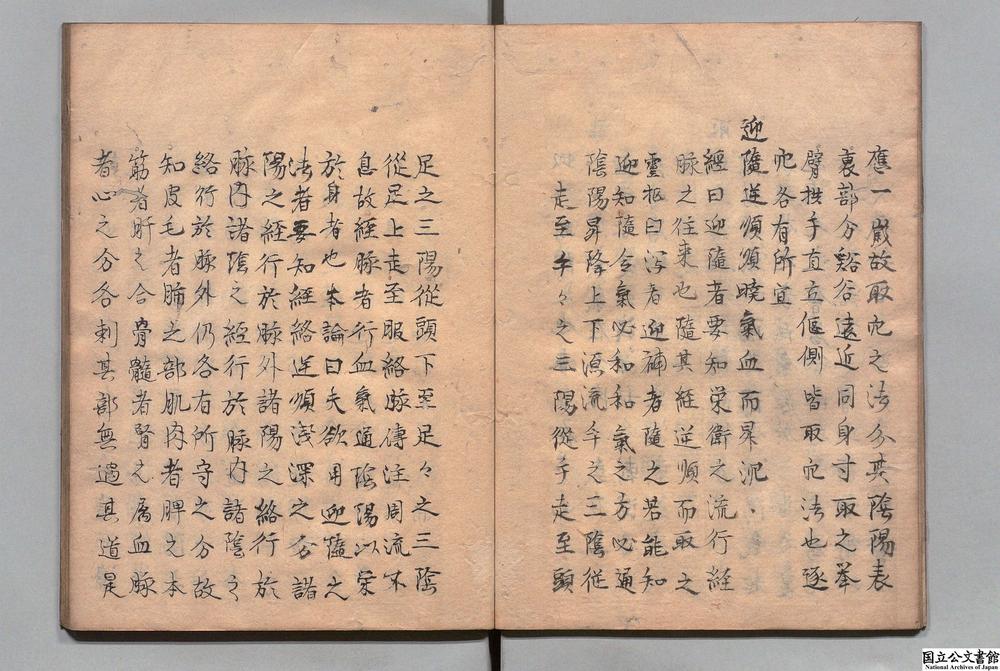 應一嵗故取穴之法分其陰陽表
裏部分谿谷遠近同身寸取之举
臂拱手直立偃側皆取穴法也逐
穴各有所宜
迎隨逆順須曉氣血而昇沉
經曰迎隨者要知栄衛之流行経
脉之往来也隨其経逆順而取之
霊枢曰泻者迎補者隨之若能知
迎知隨令氣必和和氣之方必通
陰陽昇降上下源流手之三陰従
走至手々之三陽従手走至頭
足之三陽從頭下至足々之三陰
從足上走至腹絡脉傳注周流不
息故経脉者行血氣通陰陽以栄
於身者也本論曰夫欲用迎隨之
法者要知経絡逆順浅深之分諸
陽之経行於脉外諸陽之絡行於
脉内諸陰之経行於脉内諸陰之
絡行於脉外仍各有所守之分故
知皮毛者肺之部肌肉者脾之本
筋者肝之合骨髓者腎之属血脉
者心之分各刺其部無過其道是
国立公文書館
National Archives of Japan